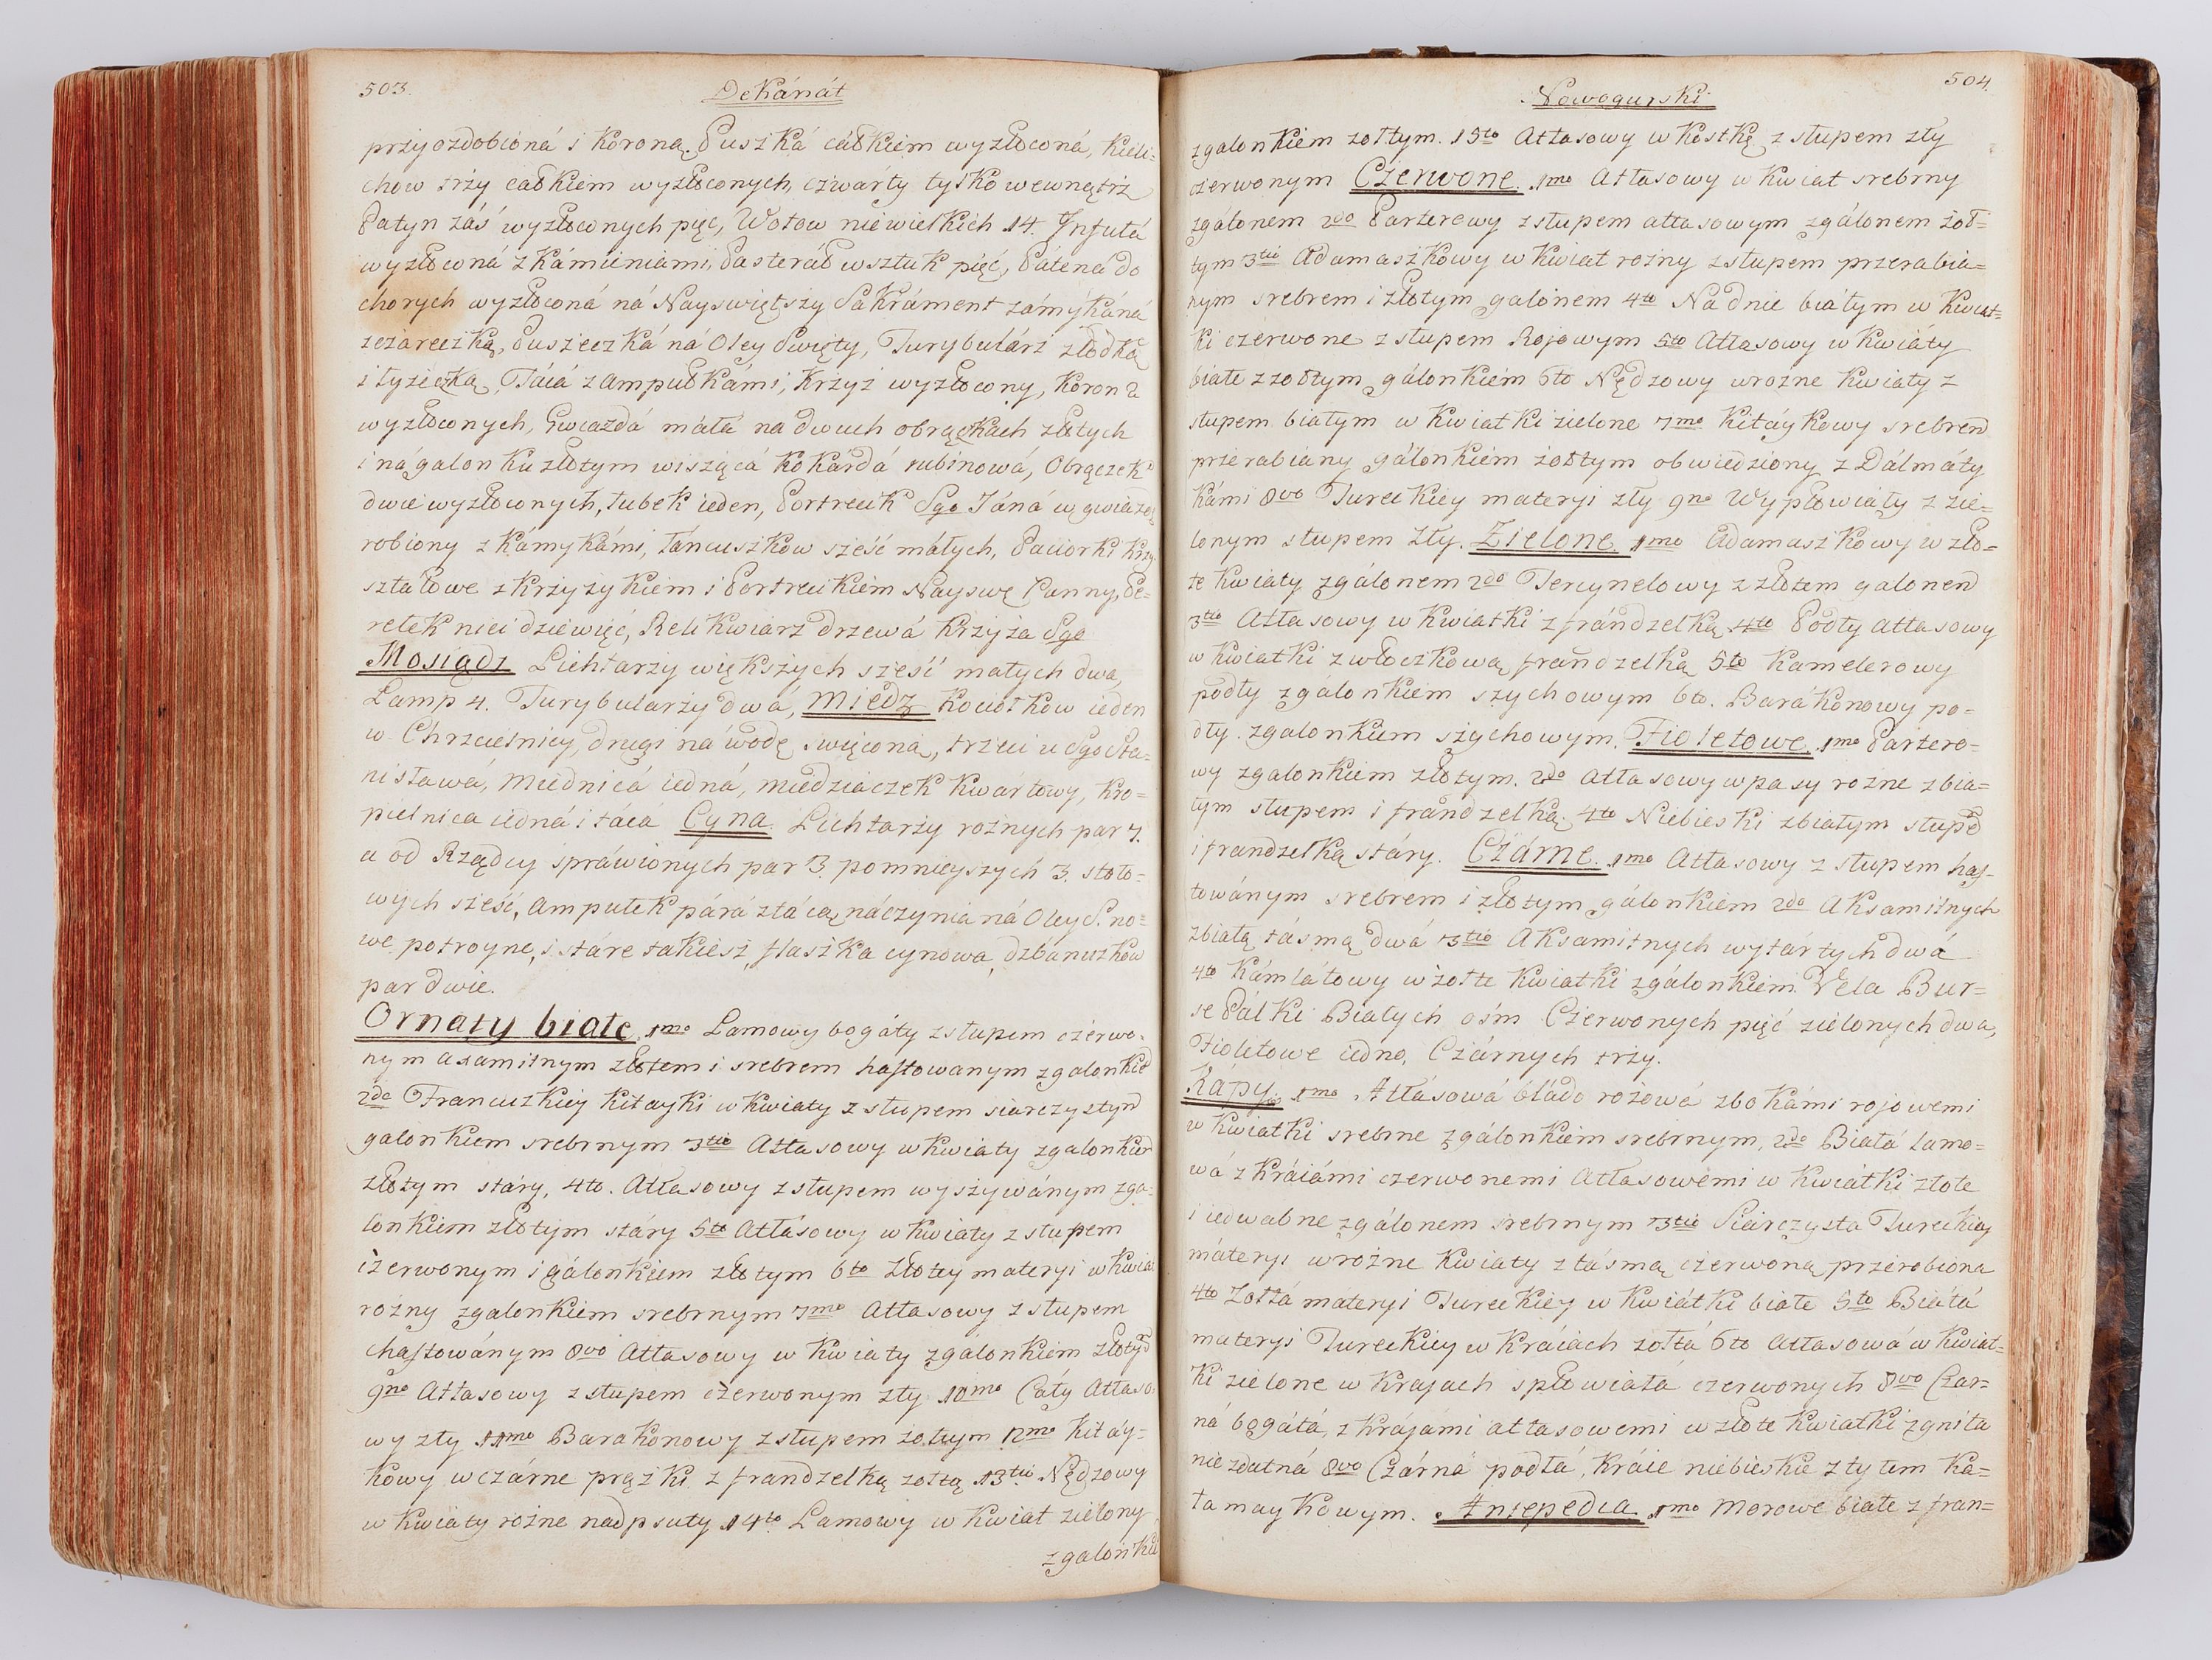 503.
Dekánát
przyozdobioná i Koroną. Puszká cáłkiem wyzłoconá, Kieli=
chow trży całkiem wyzłoconych, czwarty tylko wewnątrz
Patyn záś wyzłoconych pięć, Wotow niewielkich 14. Jnfułá
wyzłoconá z Kámieniami, Pasterał w sztuk pięć, Páténá do
chorych wyzłoconá ná Nayswiętszy Sakráment zámykáná
zczáreczką, Puszeczká ná Oley Swięty, Turybulárz złodką
i łyzieczką, Tácá z ampułkámi, Krzyż wyzłocony, Koron 2
wyzłoconych, Gwiazdá máłá na dwuch obrączkach złotych
i ná galonku złotym wisząca Kokárdá rubinowá, Obrączek
dwie wyzłoconych, łubek ieden, Portrecik Sgo Jáná w gwiazdę
robiony z Kámykámi, łáncuszkow sześć máłych, Paciorki Krzy
ształowe z Krzyżykiem i Portrecikiem Nayswę Panny, Pe=
rełek nici dziewięć, Relikwiarz drzewá Krzyża Sgo
Mosiądz Lichtarzy większych sześć małych dwa,
Lamp 4. Turybularży dwá, Miedz Kociołkow ieden
w Chrzcielnicy, drugi ná wodę swięconą, trzeci u Sgo Sta=
nisława, Miednicá iedná, miedziaczek Kwártowy, Kro=
pielnica iedná i tácá Cyna. Lichtarży rożnych par 7.
a od Rządcy spráwionych par 3. pomnieyszych 3. stoło=
wych sześć, ampułek párá z tácą náczynia ná Oley S. no=
we potroyne, i stáre takież flaszka cynowa, dzbanuszkow
par dwie.
Ornaty białe 1mo Lamowy bogáty z stupem czerwo=
nym axamitnym złotem i srebrem haftowanym z galonkiē
2do Francuzkiey Kitayki w Kwiaty z stupem siarczystym
galonkiem srebrnym 3tio Atłasowy w kwiaty z galonkiē
złotym stáry, 4to. Atłasowy z stupem wyszywánym z ga=
lonkiem złotym stáry 5to Atłásowy w kwiaty z stupem
czerwonym i gálonkiem złotym 6to Złotey materyi w kwiat
rożny z galonkiem srebrnym 7mo Atłasowy z stupem
chaftowánym 8vo Atłasowy w kwiaty z gálonkiem złotym
9no Atłasowy z stupem czerwonym zły 10mo Cały Atłaso=
wy zły 11mo Barakonowy z stupem żołtym 12mo Kitáy=
kowy w czárne prążki z frandzelką żołtą 13tio Nędzowy
w kwiáty rożne nadpsuty 14to Lamowy w kwiat zielony
z galonkiē
504.
Nowogurski
z galonkiem żołtym. 15to Atłasowy w Kostkę z stupem zły
czerwonym Czerwone. 1mo Atłasowy w kwiat srebrny
z gálonem 2do Parterowy z stupem atłasowym z gálonem żoł=
tym 3tio Adamaszkowy w kwiat rożny z stupem przerabia=
nym srebrem i złotym galonem 4to Na dnie białym w kwiat=
ki czerwone z stupem Rojowym 5to Atłasowy w kwiáty
białe z żołtym gálonkiem 6to Nędzowy w rożne Kwiaty z
stupem białym w kwiatki zielone 7mo Kitáykowy srebrem
przerabiany gálonkiem żołtym obwiedziony z Dálmáty
kámi 8vo Tureckiey materyi zły 9no Wypłowiáły z zie=
lonym stupem zły. Zielone 1mo Adamaszkowy w zło=
te kwiaty z gálonem 2do Tercynelowy z złotem galonem
3tio Atłasowy w kwiatki z frándzelką 4to Podły atłasowy
w kwiatki z włoczkową frandzelką 5to Kamelerowy
podły z gálonkiem szychowym 6to. Barákonowy po=
dły z galonkiem szychowym. Fioletowe 1mo Partero=
wy z galonkiem złotym. 2do Atłasowy w pasy rożne z bia=
łym stupem i frandzelką. 4to Niebieski z białym stupē
i frandzelką stáry. Czárne. 1mo Atłasowy z stupem haf=
towánym srebrem i złotym gálonkiem 2do Aksamitnych
z białą táśmą dwá 3tio Aksamitnych wytártych dwá
4to Kámlátowy w żołte kwiatki z gálonkiem. Vela Bur=
se Pálki Białych ośm Czerwonych pięć zielonych dwa,
Fioletowe iedno, Czárnych trży.
Kápy. 1mo Atłásowá bládo rożowá z bokámi rojowemi
w kwiatki srebrne z gálonkiem srebrnym, 2do Białá lamo=
wá z Kráiámi czerwonemi Atłasowemi w kwiátki złote
i iedwabne z gálonem srebrnym 3tio Siárczysta Tureckiey
máteryi w rożne kwiaty z táśmą czerwoną przerobiona
4to Zołtá materyi Tureckiey w kwiátki białe 5to Białá
materyi Tureckiey w Kráiach żołtá 6to Atłasowá w kwiat=
ki zielone w Krajach spłowiała czerwonych 8vo Czar=
ná bogátá, z Krájámi atłasowemi w złote kwiatki zgniła
niezdatná 8vo Czárná podłá, Kráie niebieskie z tyłem Ka=
tamaykowym. Antepedia 1mo Morowe białe z fran=